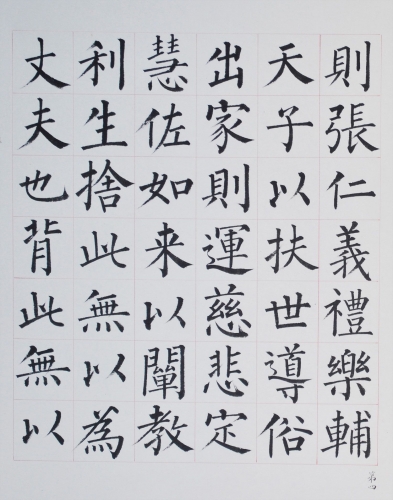 則張仁義禮樂輔
天子以扶世導俗
出家則運慈悲定
慧佐如来以闡教
利生捨此無以為
丈夫也背此無以
第四